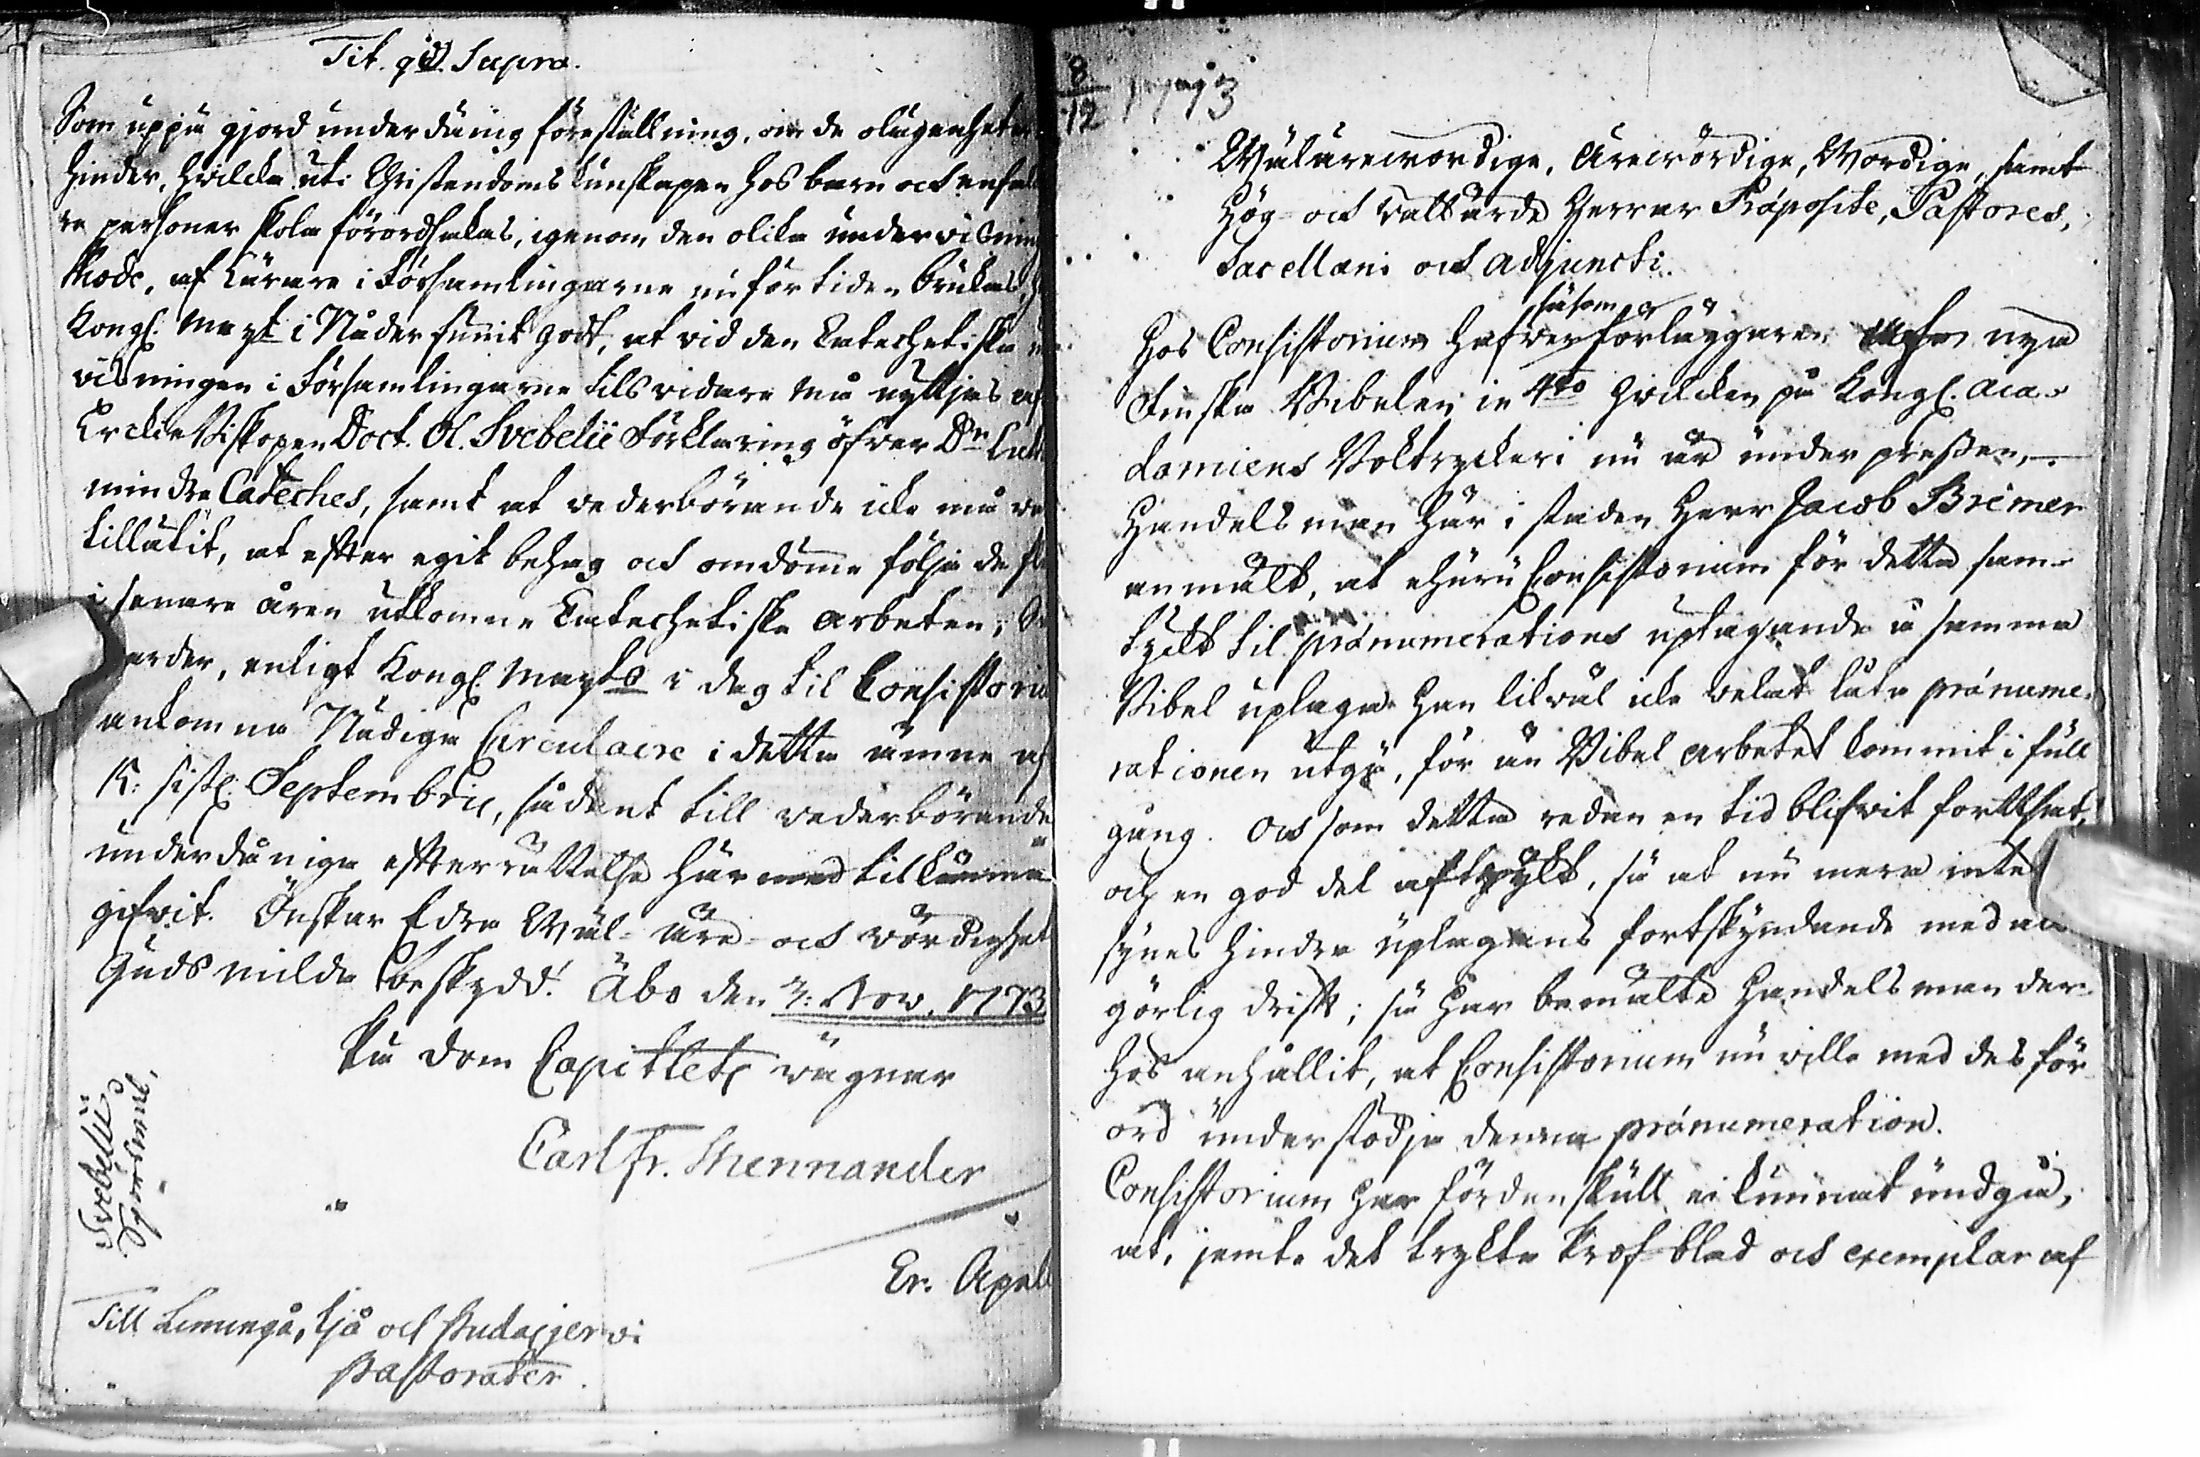 Tit. qvd. Supra.
Som uppå gjord underdånig föreställning, om de olägenheter
hinder, hvilcka uti Christendoms kunskapen hos barn och enfal
re personer skola förordsakas, igenom den olika undervisnings
Mode, af Lärare i Församlingarne nu förtiden brukas,
Kongl. Mayt i Nåder funnit godt, at vid den Catechetiska
visningen i Församlingarne tils vidare må nyttjas
Ercke Biskopen Doct. Ol. Svebelii Förklaring öfver Dn Luth
mindre Cateches, samt at vederbörande icke må
tillåtit, at efter egit behag och omdöme följa de
i senare åren utkomne Catechetiske arbeten;
arder, enligt Kongl. Mayts i dag til Consistorie
ankomne Nådiga Circulaire i detta ämne af
15: sistl. Septembris, sådant till vederbörande
underdånige efterrättelse härmed tilkänna
gifvit. Önskar Edra Wäl- Äre- och vördighet
Guds milda beskydd. Åbo den 3: Nov. 1773
På Dom Capitlets vägnar
Carl Fr. Mennander
Er. Apell
Svebelii
Spörsmål,
Till Limingå, Ijå och Pudasjervi
Pastorater.
8
12 1773
Wälärewördige, Ärewördige, Wördige, samt
Hög- och Wallärde Herrar Præposite, Pastores,
Sacellani och Adjuncti.
såsom
Hos Consistorium hafver förläggaren nya
Finska Bibelen in 4to hvilcken på Kongl. Aca-
damiens Boktryckeri nu är under pressen,
Handelsman här i staden Herr Jacob Bremer
anmält, at ehuru Consistorium för detta sam-
tyckt til prænumerations uptagande å samma
Bibel uplaga han likväl icke velat låta prænume-
rationen utgå, för än Bibel arbetet kommit i full
gång. Och som detta redan en tid blifvit fortsat,
och en god del aftryckt, så at nu mera intet
synes hindra uplagans fortskyndande med
görlig drift; så har bemälte Handelsman der-
hos anhållit, at Consistorium nu ville med des för-
ord understödja denna prænumeration.
Consistorium har fördenskull ei kunnat undgå,
at, jemte det tryckta Prof-blad och exemplar af